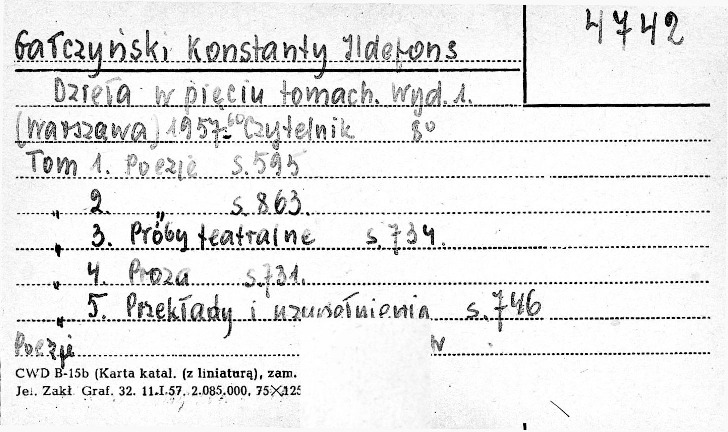 4742
Gałczyński Konstanty Ildefons
Dzieła w pięciu tomach. Wyd. 1.
(Warszawa) 1957-60 Czytelnik 8°
Tom 1. Poezje s. 595
„ 2. „ s. 863.
„ 3. Próby teatralne s. 734.
„ 4. Proza s. 731.
„ 5. Przekłady i uzupełnienia s. 746
Poezje w
CWD B-15b (Karta katal. (z liniaturą), zam.
Jel. Zakł. Graf. 32. 11.I.57. 2.085.000, 75×125